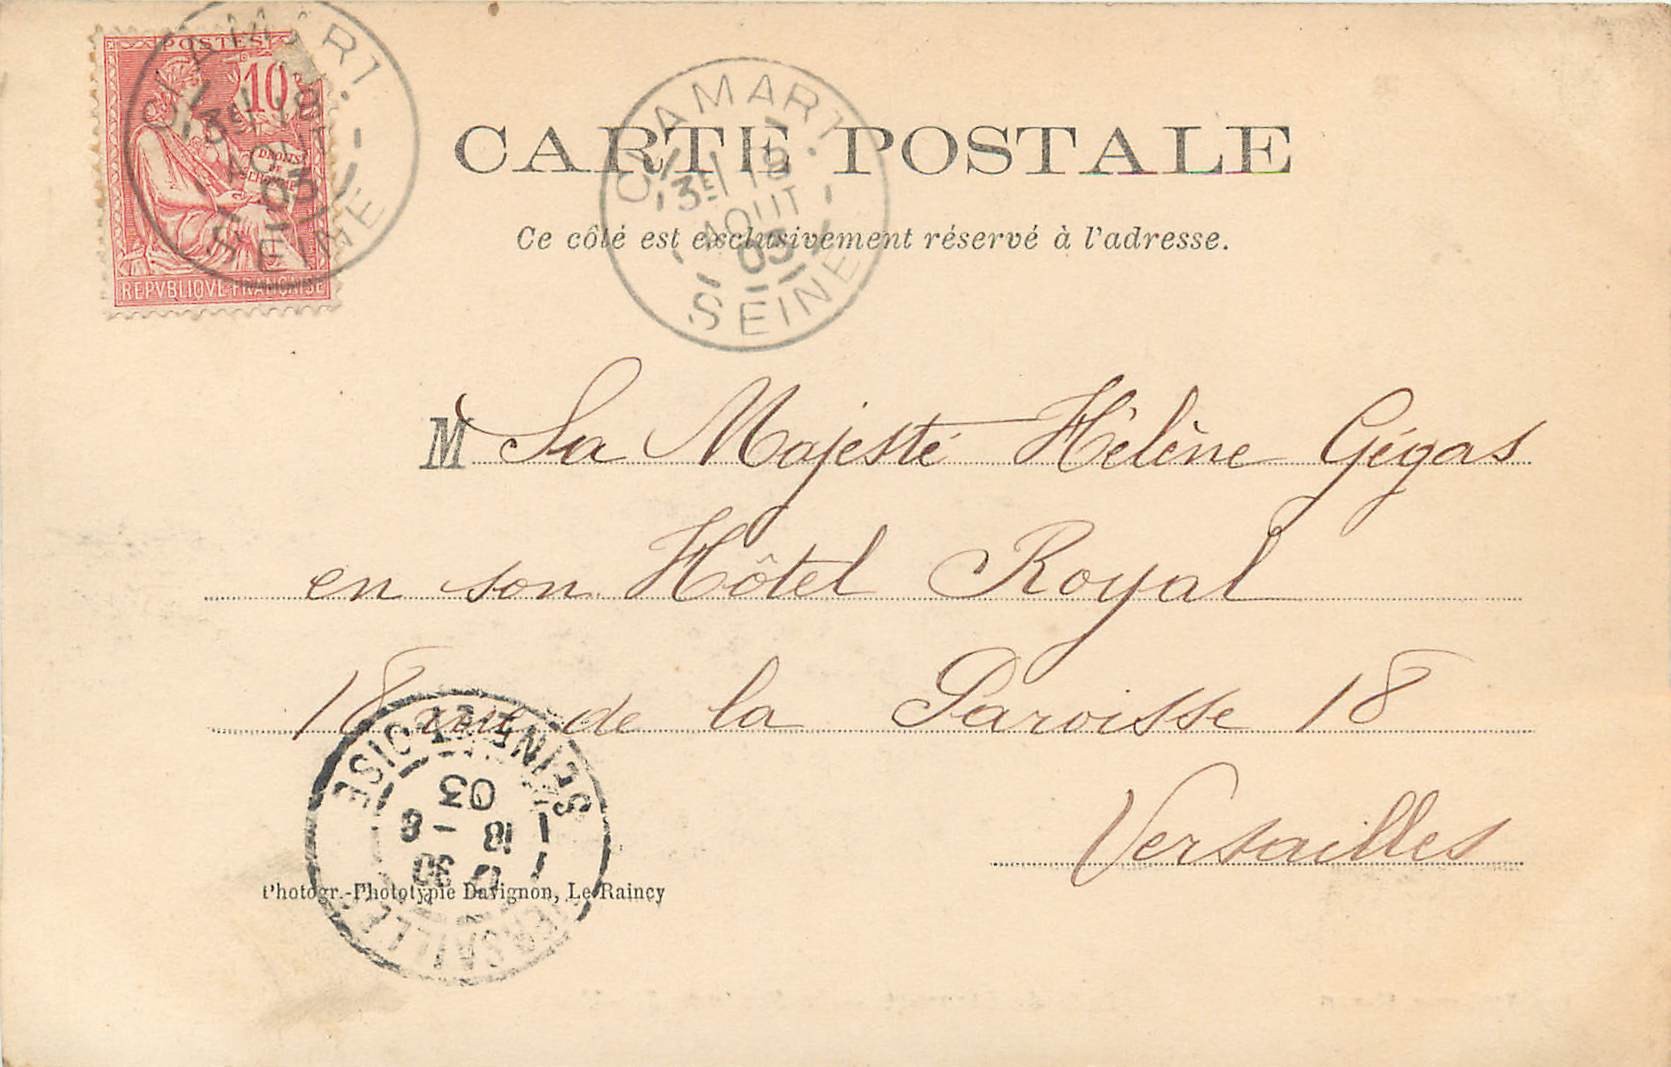 POSTES
10
DROITS
DE
L'HOMME
REPVBLIQVE FRANÇAISE
CLAMART
3E 18
AOUT
03
SEINE
CLAMART
3E 18
AOUT
03
SEINE
CARTE POSTALE
Ce côté est exclusivement réservé à l'adresse.
M Sa Majesté Hélène Gégas
en son Hôtel Royal
18 rue de la Paroisse 18
Versailles
VERSAILLES
30
18 - 8
03
SEINE ET OISE
Photogr.-Phototypie Davignon, Le Raincy